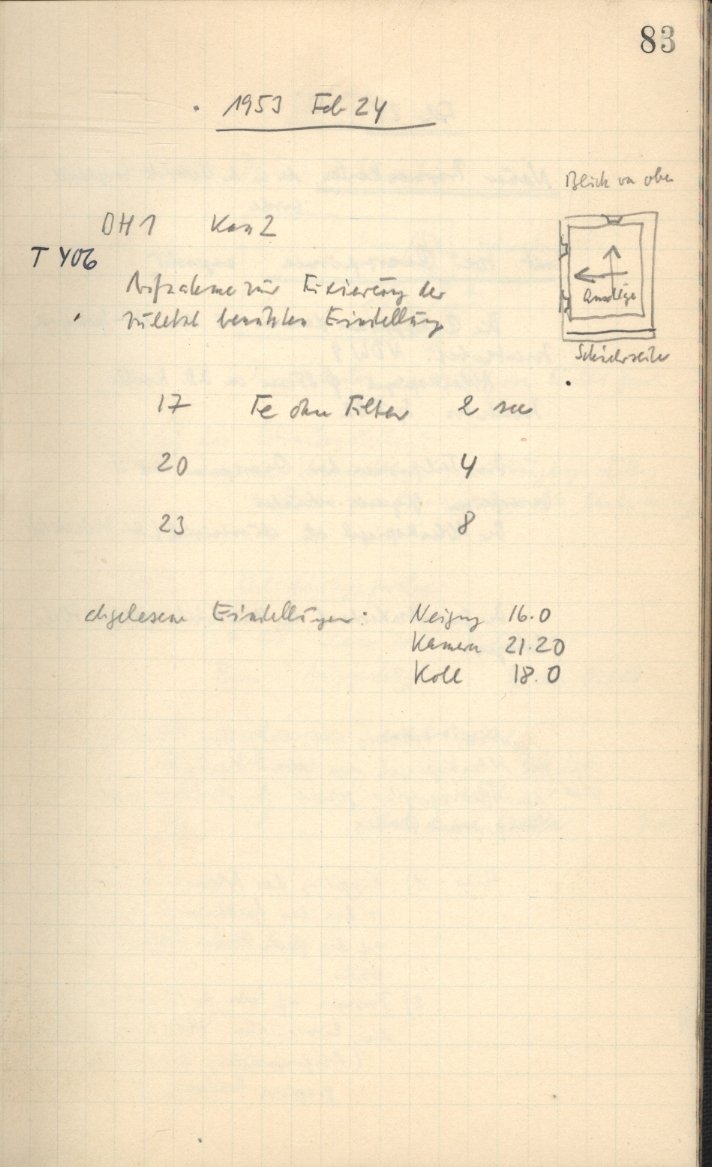 83
1953 Feb 24
Blick von oben
OH1 Kas 2
T 406
Aufnahme zur Fixierung der
zuletzt benützten Einstellung
Anschläge
Schieberseite
17 Fe ohne Filter 2 sec
20 4
23 8
abgelesene Einstellungen: Neigung 16.0
Kamera 21.20
Koll 18.0